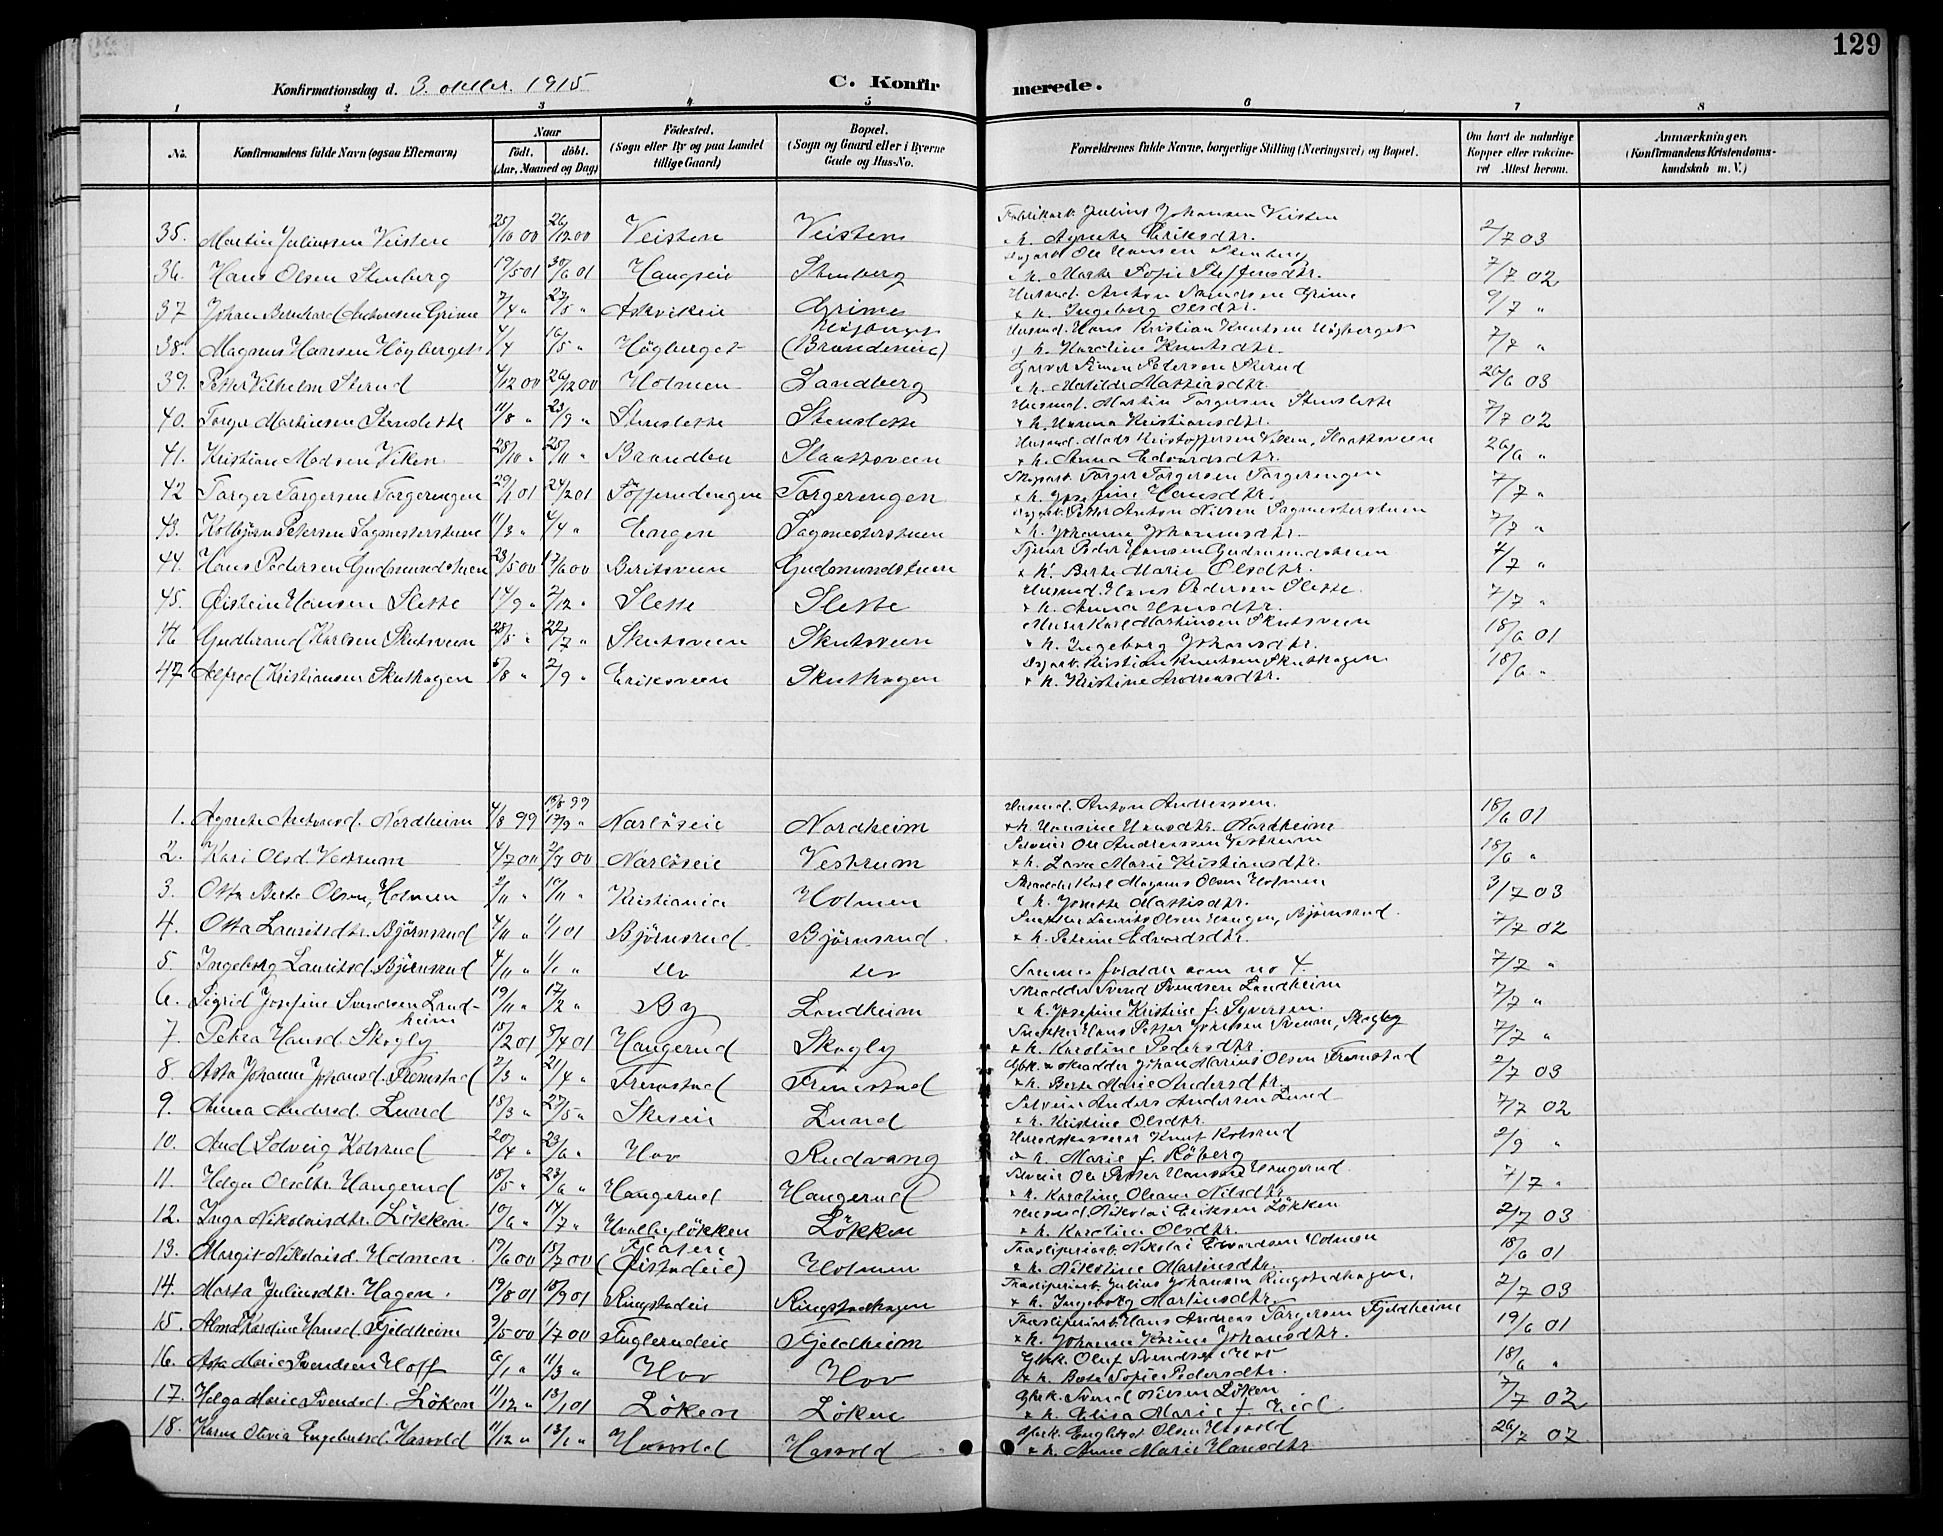 129
Konfirmationsdag d. 3. oktbr. 1915
C. Konfirmerede.
1 2 3 4 5 6 7 8
No. Konfirmandens fulde Navn (ogsaa Efternavn)
Naar
født. døbt.
(Aar, Maaned og Dag)
Fødested.
(Sogn eller By og paa Landet
tillige Gaard)
Bopæl.
(Sogn og Gaard eller i Byerne
Gade og Hus-No.
Forældrenes fulde Navne, borgerlige Stilling (Næringsvei) og Bopæl.
Om havt de naturlige
Kopper eller vakcine-
ret Attest herom.
Anmærkninger.
(Konfirmandens Kristendoms-
kundskab m. V.)
35. Martin Juliussen Veisten 25/10 00 26/12 00 Veisten Veisten Fabrikarb. Julius Johansen Veisten
& h. Agnethe Eriksdtr. 2/7 03
36. Hans Olsen Stenberg 19/5 01 30/6 01 Haugseie Stenberg Ole Hansen Stenberg
& h. Marte Sofie Steffensdtr. 7/7 02
37 Johan Bernhard Antonsen Grime 7/4 " 27/5 " Askvikeie Grime Husmd. Anton Grime
& h. Ingeborg Olsdtr. 9/7 "
38. Magnus Hansen Högberget 4/4 16/5 " Högberget Högberget
(Brandseie) Husmd. Hans Kristian Knutsen Högberget
& h. Karoline Knutsdtr. 7/7 "
39. Petter Vilhelm Sterud 4/12 00 26/12 00 Holmen Sandberg Simen Petersen Sterud
& h. Matilde Mathisdtr. 26/6 03
40. Torger Martinsen Stensletте 11/8 " 23/9 " Stenslette Stenslette Husmd. Martin Torgersen Stenslette
& h. Hanna Kristiansdtr. 7/7 02
41. Kristian Madsen Viken 28/10 " 25/11 " Brandbu Slaattsveen Husmd. Mads Kristoffersen Viken, Slaattsveen
& h. Anna Edvardsdtr. 26/6 "
42 Torger Torgersen Torgerengen 29/1 01 24/2 01 Tofferudengene Torgerengen Skogarb. Torger Torgersen Torgerengen
& h. Josefine Hansdtr. 7/7 "
43. Kolbjörn Petersen Sagmesterstuen 11/3 " 4/4 " Engen Sagmesterstuen Petter Anton Nilsen Sagmesterstuen
& h. Johanne Johannesdtr. 7/7 "
44. Hans Pedersen Gudmundstuen 23/5 00 17/6 00 Beritsveen Gudmundstuen Tjener Peder Hansen Gudmundstuen
& h. Berte Marie Olsdtr. 7/7 "
45. Öistein Hansen Slette 14/9 " 2/12 " Slette Slette Husmd. Hans Pedersen Slette
& h. Anna Hansdtr. 7/7 "
46 Gudbrand Karlsen Skutsveen 28/5 " 22/7 " Skutsveen Skutsveen Murer Karl Martinsen Skutsveen
& h. Ingeborg Johansdtr. 18/6 01
47 Alfred Kristiansen Skuthagen 5/8 " 2/9 " Eriksveen Skuthagen Dagarb. Kristian Knutsen Skuthagen
& h. Kristine Andreasdtr. 18/6 "
1. Agnethe Antonsd. Nordheim 4/8 99 17/9 " Narlöseie Nordheim Husmd. Anton Andreassen
& h. Hansine Hansdtr. Nordheim 18/6 01
2. Kari Olsd. Vestrum 4/7 00 2/9 00 Narlöseie Vestrum Selveier Ole Andreassen Vestrum
& h. Lava Marie Kristiansdtr. 18/6 "
3. Otta Berte Olsen, Holmen 2/11 " 17/11 " Kristiania Holmen Skrædder Karl Magnus Olsen Holmen
& h. Josette Mathisdtr. 3/7 03
4. Otta Lauritsdtr. Björnsrud 4/11 " 1/1 01 Björnsrud Björnsrud Snekker Laurits Olsen Haugen, Björnsrud.
& h. Petrine Edvardsdtr. 7/7 02
5. Ingeborg Lauritsd. Björnsrud 4/11 " 1/1 " do do Samme forældre som no 4. 7/7 "
6. Sigrid Josefine Svendsen Land-
heim 19/11 " 17/2 " By Landheim Skrædder Svend Svendsen Landheim
& h. Josefine Kristine f. Syversen. 7/7 "
7. Petra Hansd. Skogly 15/2 01 8/4 01 Haugerud Skogly Snekker Hans Petter Johansen Sveum, Skogly
& h. Karoline Pedersdtr. 7/7 "
8. Asta Johanne Johansd. Fremstad 2/3 " 21/4 " Fremstad Fremstad Gbk. & skrædder Johan Marius Olsen Fremstad
& h. Berte Marie Andersdtr. 2/7 03
9. Anna Andersd. Lund 18/3 " 27/5 " Skeseie Lund Selveier Anders Andersen Lund
& h. Kristine Olsdtr. 7/7 02
10. Aud Solveig Kolsrud 20/4 " 23/6 " Hov Rudvang Herredskasserer Knut Kolsrud
& h. Marie f. Röberg 2/9 "
11. Helga Olsdtr. Haugerud 18/5 " 23/6 " Haugerud Haugerud Selveier Ole Petter Hansen Haugerud
& h. Karoline Oleane Nilsdtr. 7/7 "
12. Inga Nikolaisdtr. Lökken 10/6 " 14/7 " Hvalbylökken Lökken Husmd. Nikolai Eriksen Lökken
& h. Karoline Olsdtr. 2/7 03
13. Margit Nikolaisd. Holmen 19/6 00 15/7 00 (Öistadeie) Holmen Træsliperiarb. Nikolai Edvardsen Holmen
& h. Nikoline Martinsdtr. 18/6 01
14. Marta Juliusdtr. Hagen 19/8 01 15/9 01 Ringstadeie Ringstadhagen Træsliperiarb. Julius Johansen Ringstadhagen.
& h. Ingeborg Martinsdtr. 2/7 03
15. Alma Karoline Hansd. Fjeldheim 9/5 00 1/7 00 Fuglerudeie Fjeldheim Træsliperiarb. Hans Andreas Torgersen Fjeldheim
& h. Johanne Karine Johansdtr. 19/6 01
16. Asta Marie Svendsen Hoff 6/1 " 11/3 " Hov Hov Gbk. Oluf Svendsen Hov
& h. Berte Sofie Pedersdtr. 18/6 "
17. Helga Marie Svendsd. Löken 11/12 " 13/1 01 Löken Löken Gbk. Svend Löken
& h. Elisa Marie f. Eid 7/7 02
18. Karen Olivia Engebretsd. Hasvold 11/12 " 13/1 " Hasvold Hasvold Gbk. Engebret Olsen Hasvold
& h. Anne Marie Hansdtr. 26/7 02